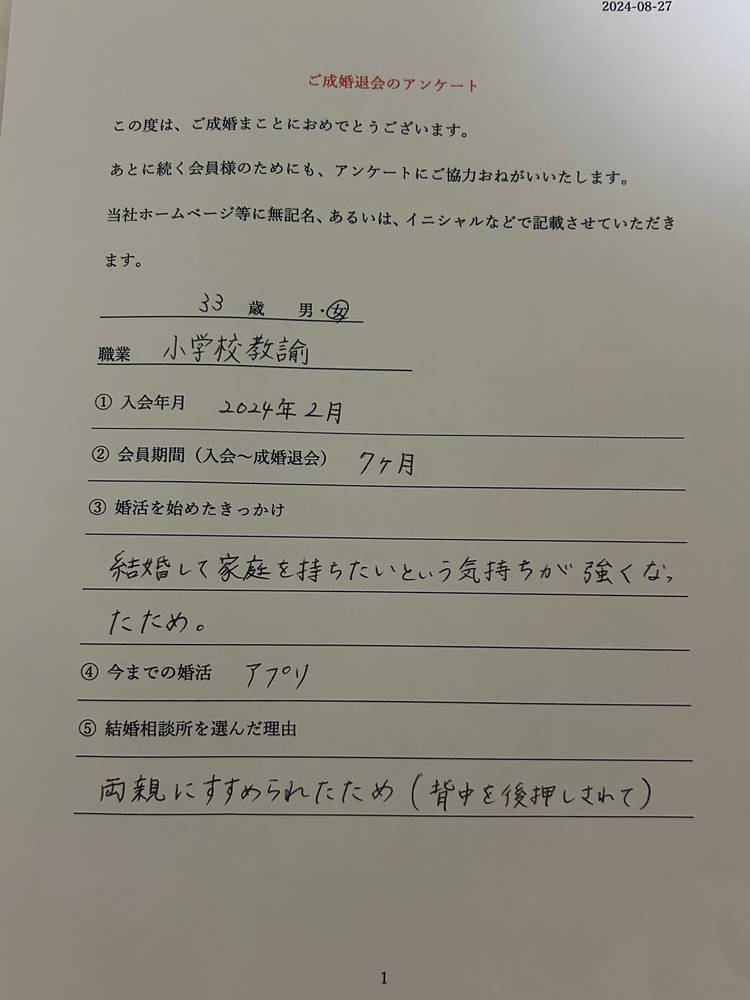 2024-08-27
ご成婚退会のアンケート
この度は、ご成婚まことにおめでとうございます。
あとに続く会員様のためにも、アンケートにご協力おねがいいたします。
当社ホームページ等に無記名、あるいは、イニシャルなどで記載させていただき
ます。
33 歳 男・女
職業 小学校教諭
① 入会年月 2024年2月
② 会員期間（入会～成婚退会） 7ヶ月
③ 婚活を始めたきっかけ
結婚して家庭を持ちたいという気持ちが強くなっ
たため。
④ 今までの婚活 アプリ
⑤ 結婚相談所を選んだ理由
両親にすすめられたため(背中を後押しされて)
1